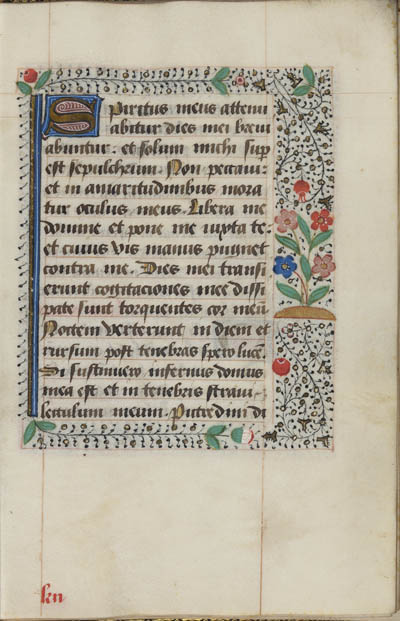 Spiritus meus attenu
abitur dies mei brevi
abuntur: et solum michi sup
est sepulchrum. Non peccavi:
et in amaritudinibus mora
tur oculus meus. Libera me
domine et pone me iuxta te:
et cuius vis manus pugnet
contra me. Dies mei transi
erunt cogitaciones mee dissi
pate sunt torquentes cor meū
Noctem verterunt in diem et
rursum post tenebras spero lucē.
Si sustinuero infernus domus
mea est et in tenebris stravi
lectulum meum. Putredini di